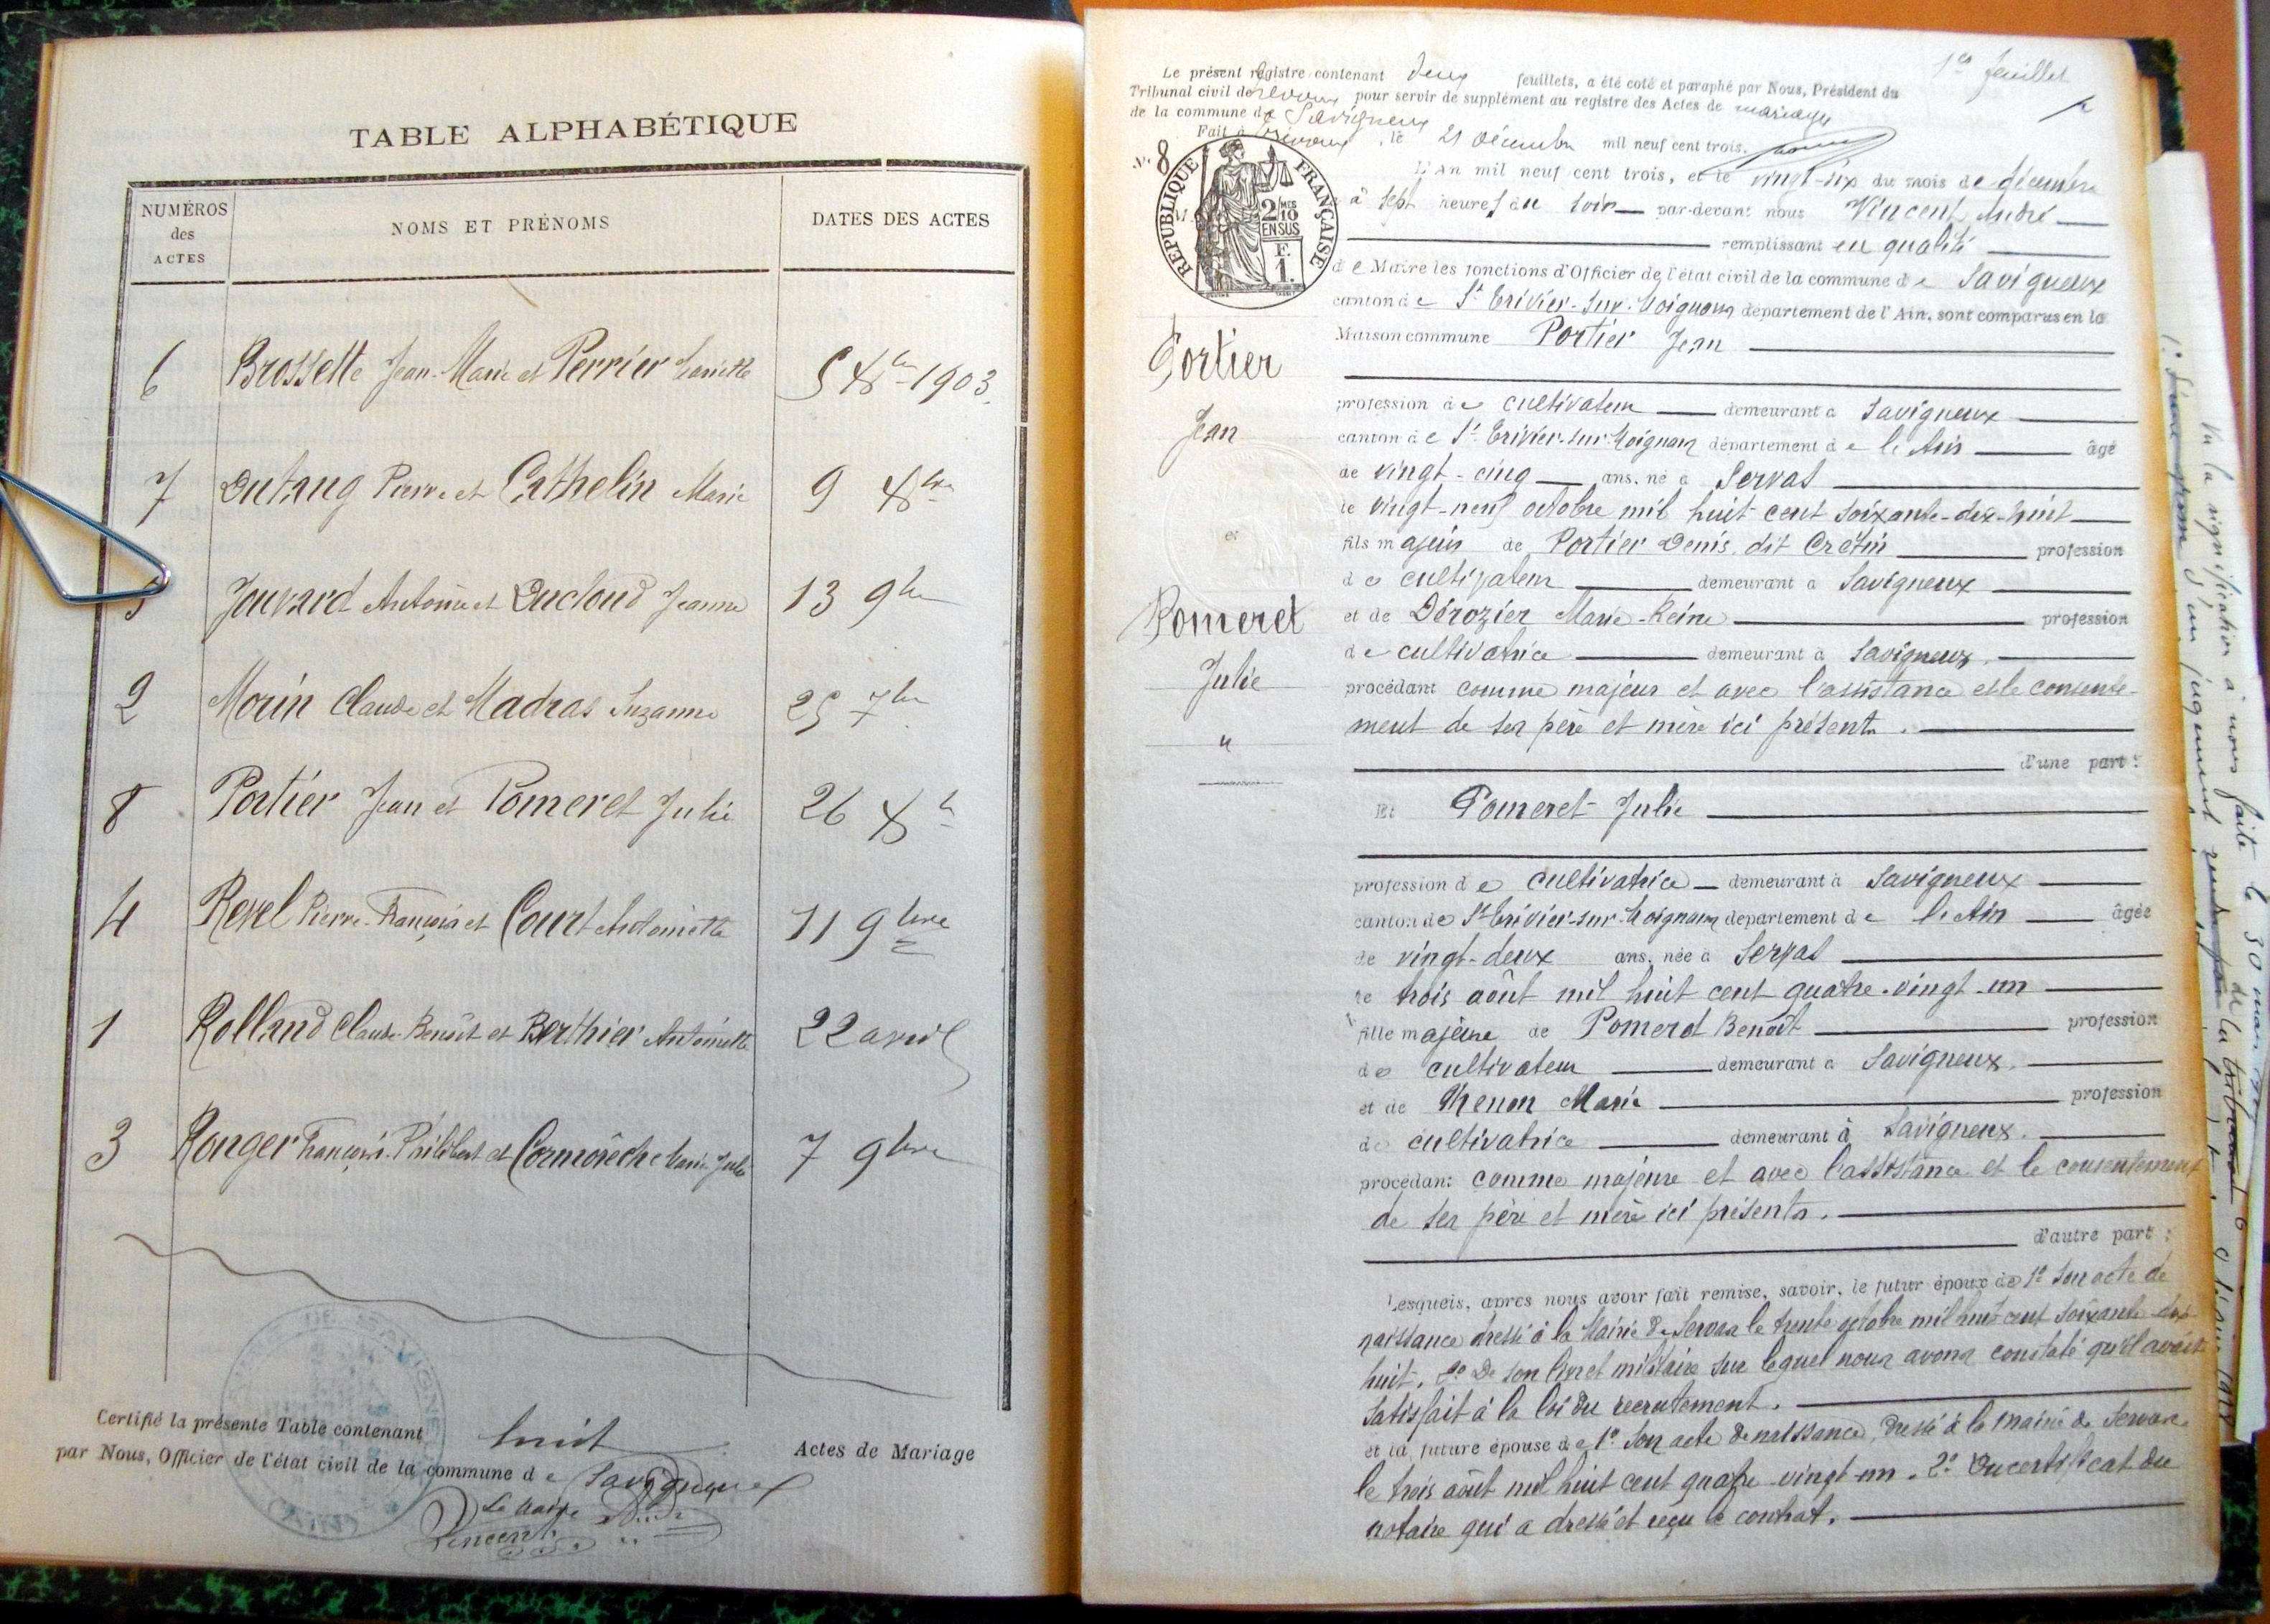 TABLE ALPHABÉTIQUE
NUMÉROS des ACTES
NOMS ET PRÉNOMS
DATES DES ACTES
6 Brossette Jean-Marie et Perrier 5 Xbre 1903.
7 Dutang Pierre et Cathelin Marie 9 Xbre
5 Jouvard Antoine et Ducloud Jeanne 13 9bre
2 Morin Claude et Madras Suzanne 25 7bre
8 Portier Jean et Pomeret Julie 26 Xbre
4 Revel Pierre-François et Court Antoinette 11 9bre
1 Rolland Claude-Benoît et Berthier Antoinette 22 avril
3 Ronger François-Philibert et Cormorèche Marie Julie 7 9bre
Certifié la présente Table contenant huit Actes de Mariage
par Nous, Officier de l'état civil de la commune de Savigneux
Le Maire
Vincent
1er feuillet
Le présent registre contenant deux feuillets, a été coté et paraphé par Nous, Président du
Tribunal civil de Trévoux pour servir de supplément au registre des Actes de mariage
de la commune de Savigneux
Fait à Trévoux, le 21 Décembre mil neuf cent trois.
N° 8
RÉPUBLIQUE FRANÇAISE
2/10 MES
EN SUS
F.
1.
L'an mil neuf cent trois, et le vingt-six du mois de décembre
à sept heures du soir par-devant nous Vincent André
remplissant en qualité
de Maire les fonctions d'Officier de l'état civil de la commune de Savigneux
canton de St Trivier-sur-Moignans département de l'Ain, sont comparus en la
Maison commune Portier Jean
Portier
Jean
et
Pomeret
Julie
"
profession de cultivateur demeurant à Savigneux
canton de St Trivier-sur-Moignans département de l'Ain âgé
de vingt-cinq ans, né à Servas
le vingt-neuf octobre mil huit cent soixante-dix-huit
fils majeur de Portier Denis, dit Crétin profession
de cultivateur demeurant à Savigneux
et de Dérozier Marie-Reine profession
de cultivatrice demeurant à Savigneux.
procédant comme majeur et avec l'assistance et le consente-
ment de ses père et mère ici présents.
d'une part :
Et Pomeret Julie
profession de cultivatrice demeurant à Savigneux
canton de St Trivier-sur-Moignans département de l'Ain âgée
de vingt-deux ans, née à Servas
le trois août mil huit cent quatre-vingt-un
fille majeure de Pomeret Benoît profession
de cultivateur demeurant à Savigneux.
et de Thenon Marie profession
de cultivatrice demeurant à Savigneux.
procédant comme majeure et avec l'assistance et le consentement
de ses père et mère ici présents.
d'autre part :
Lesquels, après nous avoir fait remise, savoir, le futur époux de 1° son acte de
naissance dressé à la Mairie de Servas le trente octobre mil huit cent soixante-dix-
huit. 2° De son livret militaire sur lequel nous avons constaté qu'il avait
satisfait à la loi du recrutement.
et la future épouse de 1° son acte de naissance, dressé à la mairie de Servas
le trois août mil huit cent quatre-vingt-un. 2° Du certificat du
notaire qui a dressé et reçu le contrat.
Vu la signification à nous faite le 30 mars
d'un jugement rendu